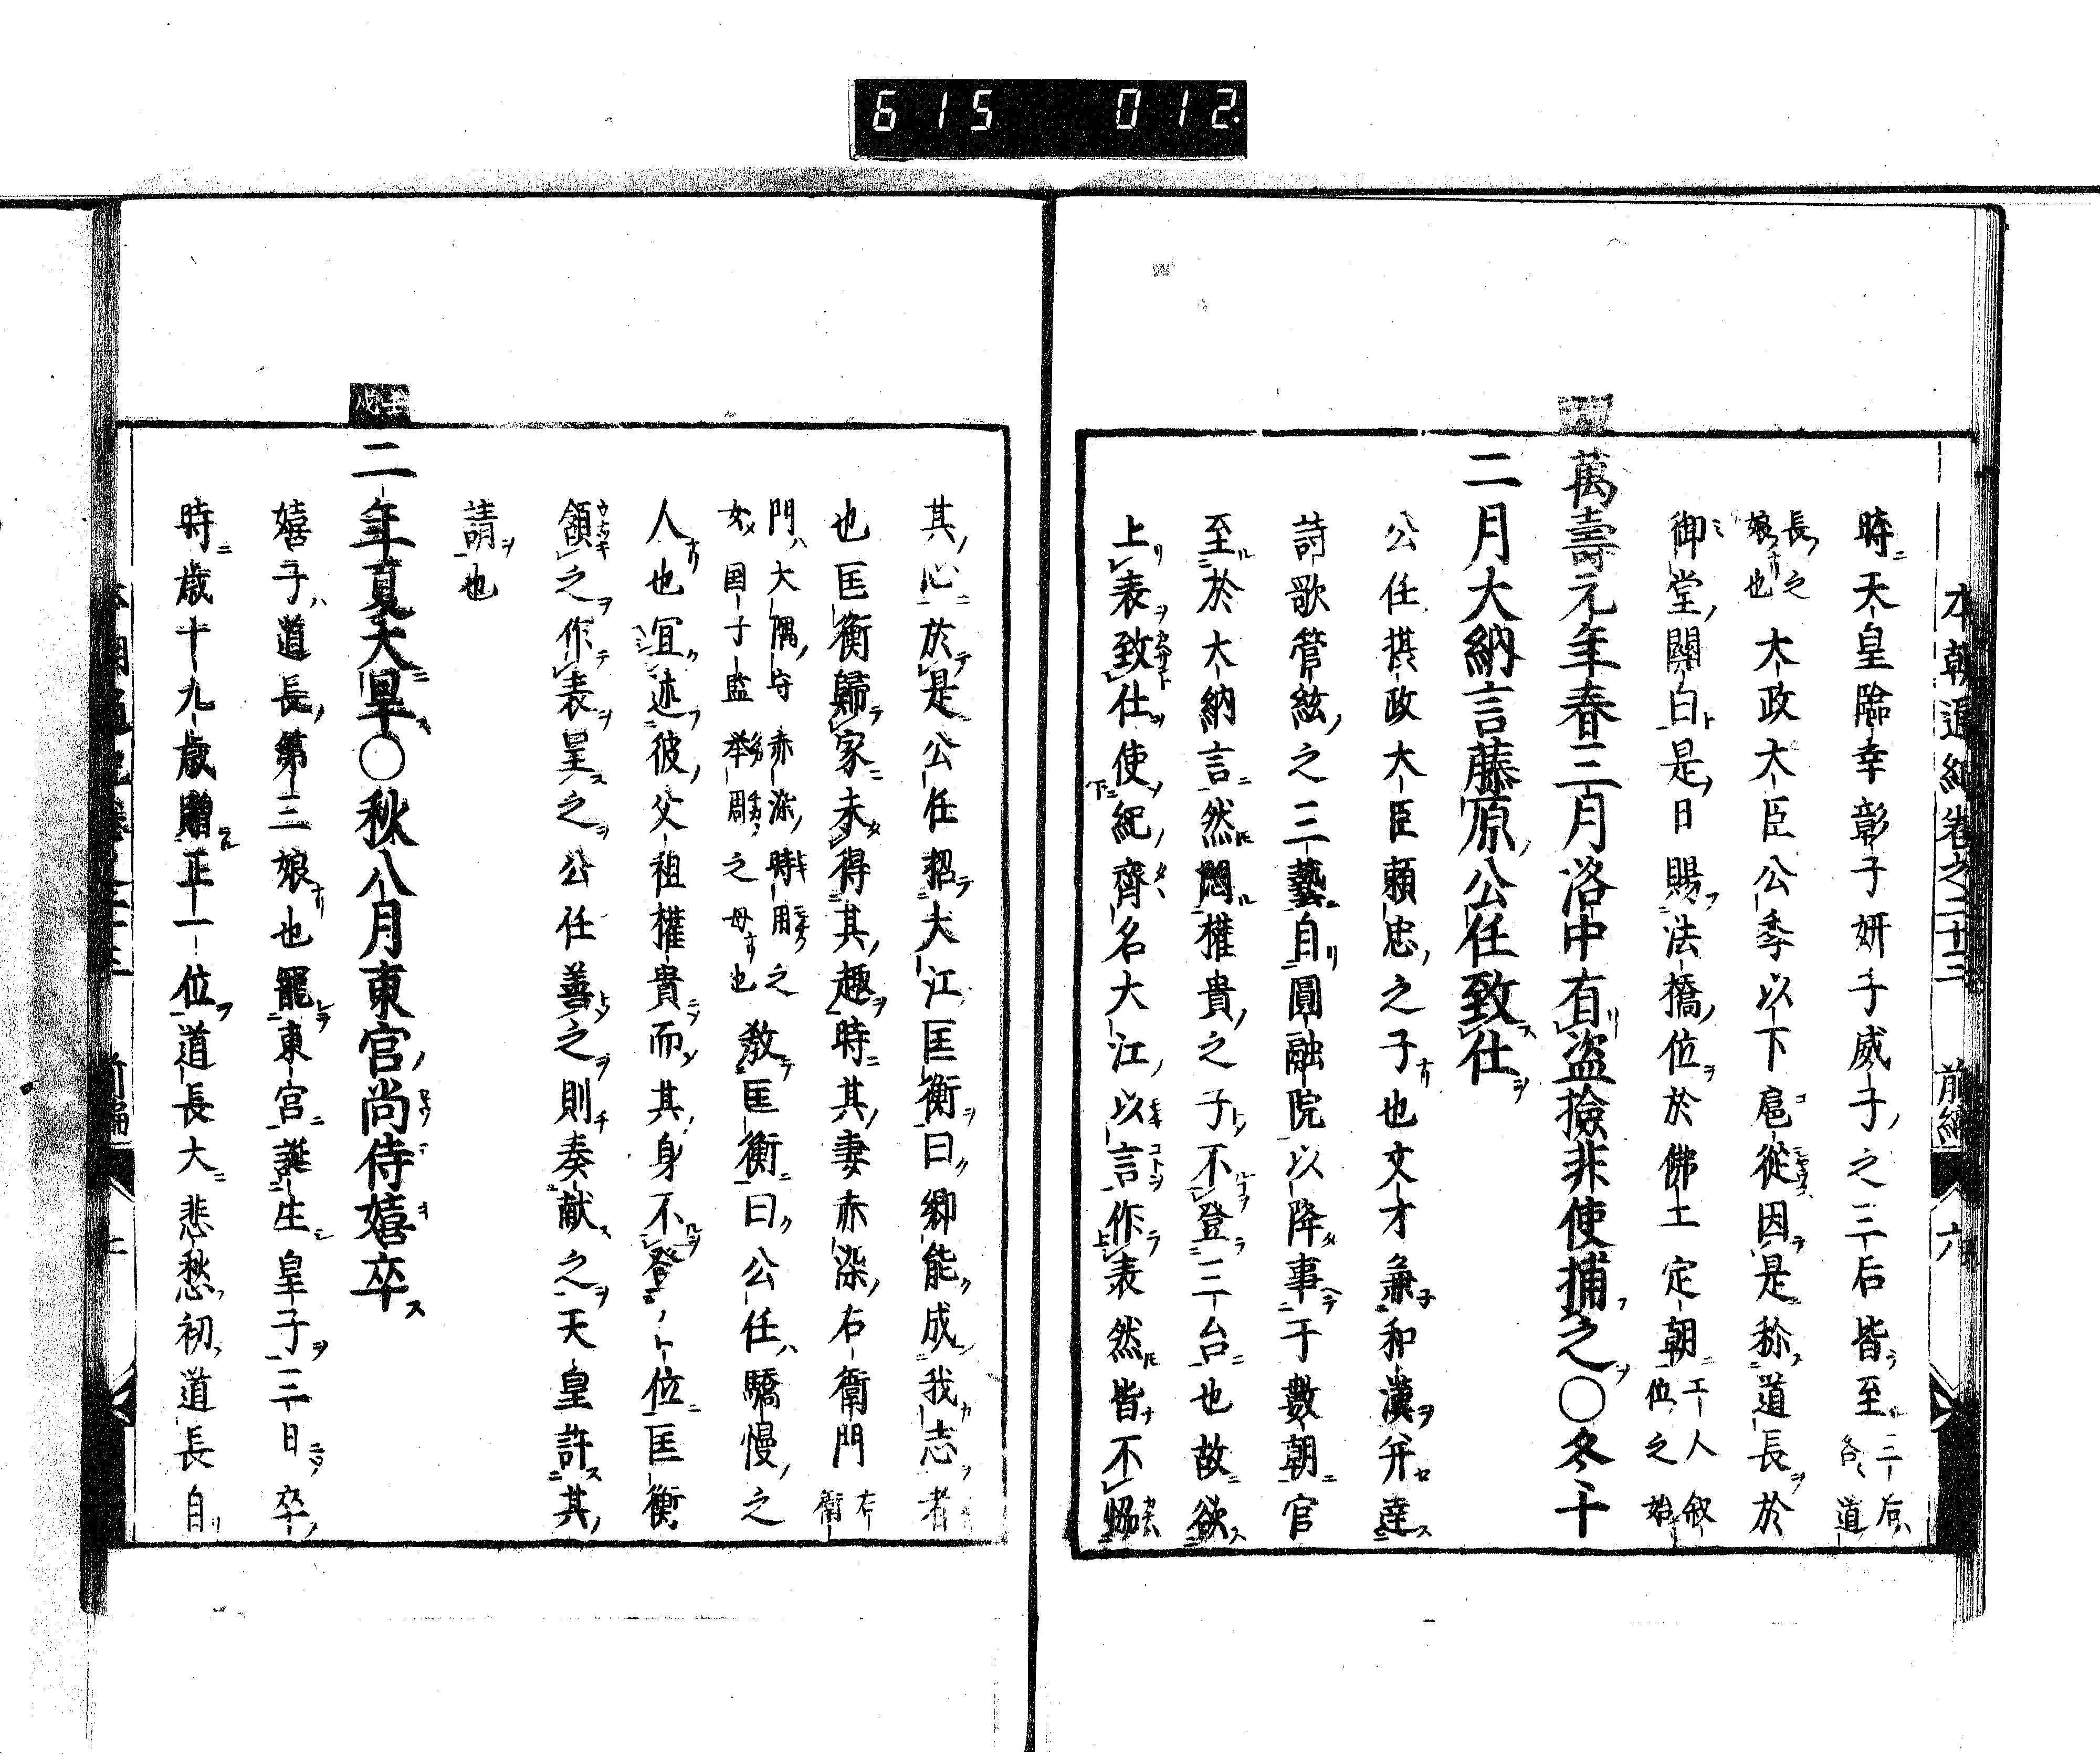 615 012.
本朝通紀卷之二十三 前編 六
時天皇臨幸彰子妍子威子之三后皆至三后 各道
長之 娘也太政大臣公季以下扈從因是称道長於
御堂關白是日賜法橋位於佛工定朝工人叙 位之始
萬壽元年春三月洛中有盗撿非使捕之〇冬十
二月大納言藤原公任致仕
公任摂政大臣頼忠之子也文才兼和漢并達
詩歌管絃之三藝自圓融院以降事于數朝官
至於大納言然悶權貴之子不登三台也故欲
上表致仕使紀齊名大江以言作表然皆不恊
其心於是公任招大江匡衡曰卿能成我志者
也匡衡歸家未得其趣時其妻赤染右衛門右衛
門大隅守赤染時用之 女国子監挙周之母也教匡衡曰公任驕慢之
人也冝述彼父祖權貴而其身不登卜位匡衡
領之作表呈之公任善之則奏献之天皇許其
請也
二年夏大旱〇秋八月東宮尚侍嬉卒
嬉子道長第三娘也寵東宮誕生皇子三日卒
時歳十九歳贈正一位道長大悲愁初道長自